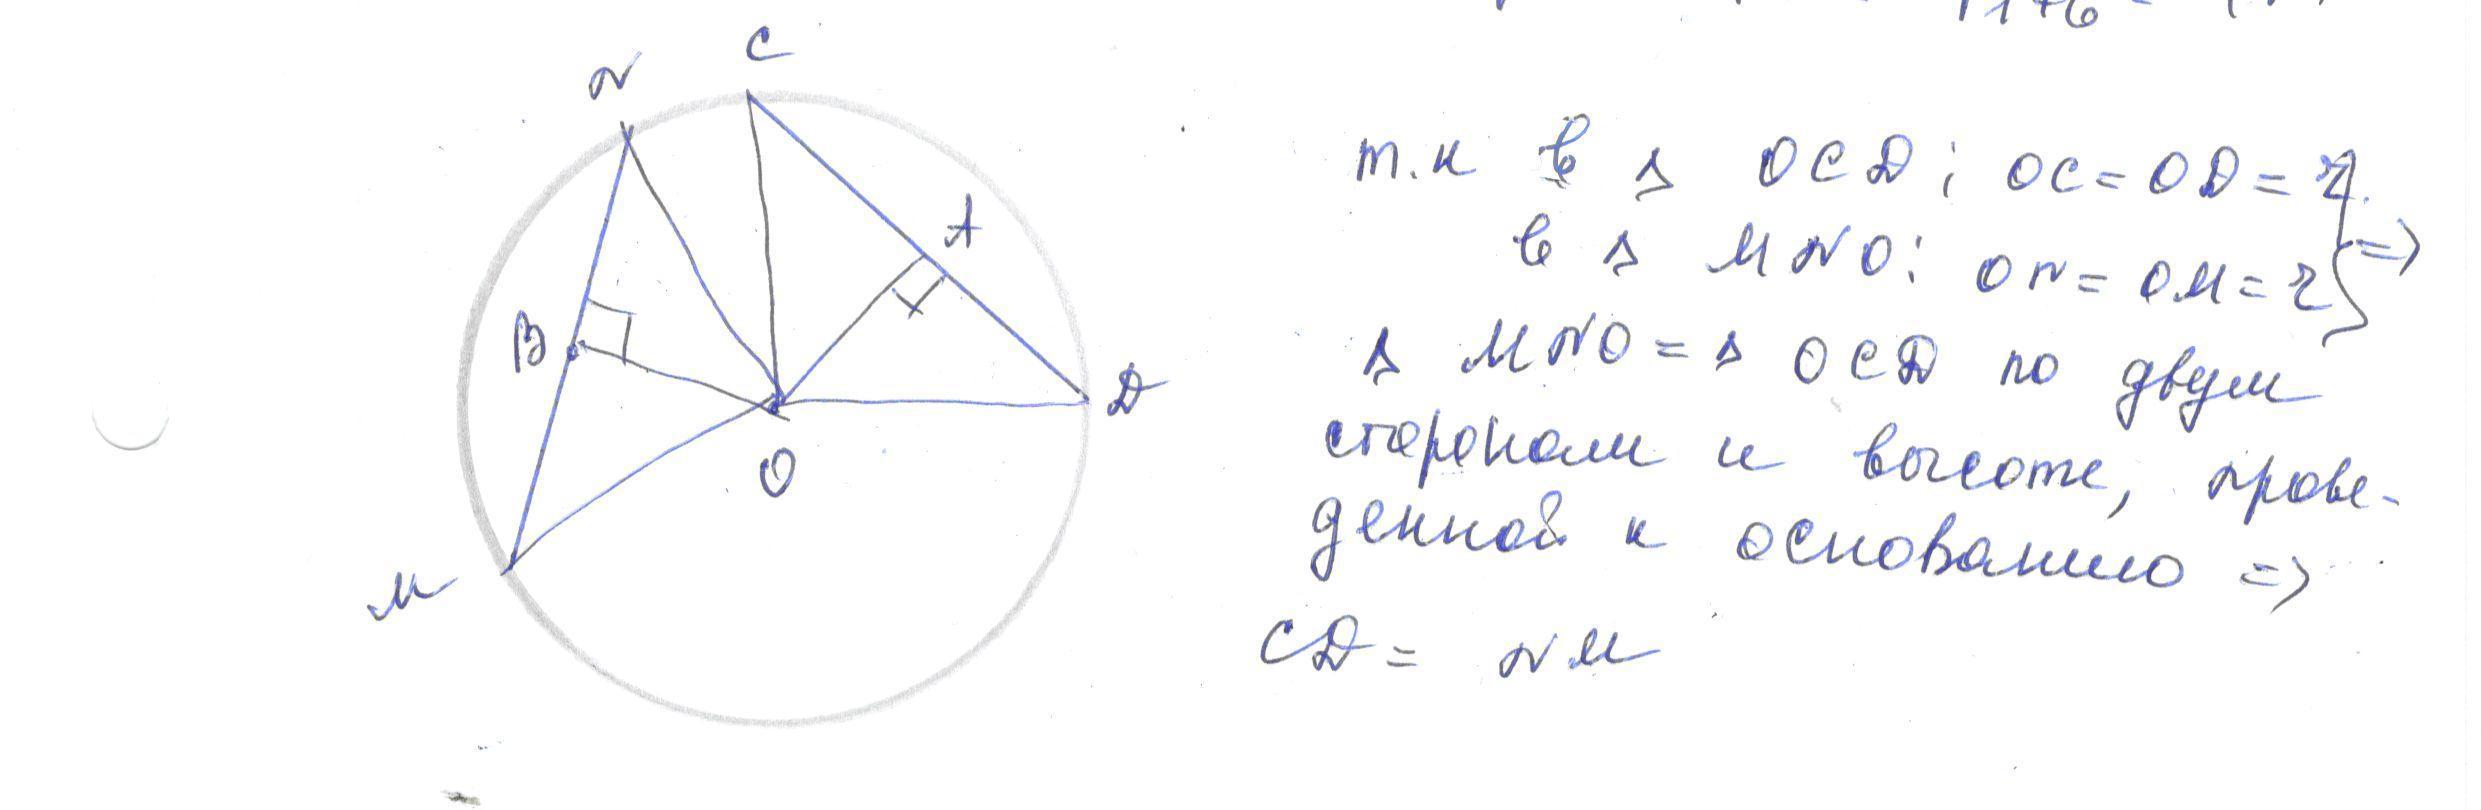 C
N
A
B
D
O
M
т.к в Δ OCD: OC = OD = r
в Δ MNO: ON = OM = r } =>
Δ MNO = Δ OCD по двум
сторонам и высоте, прове-
денной к основанию =>
CD = NM